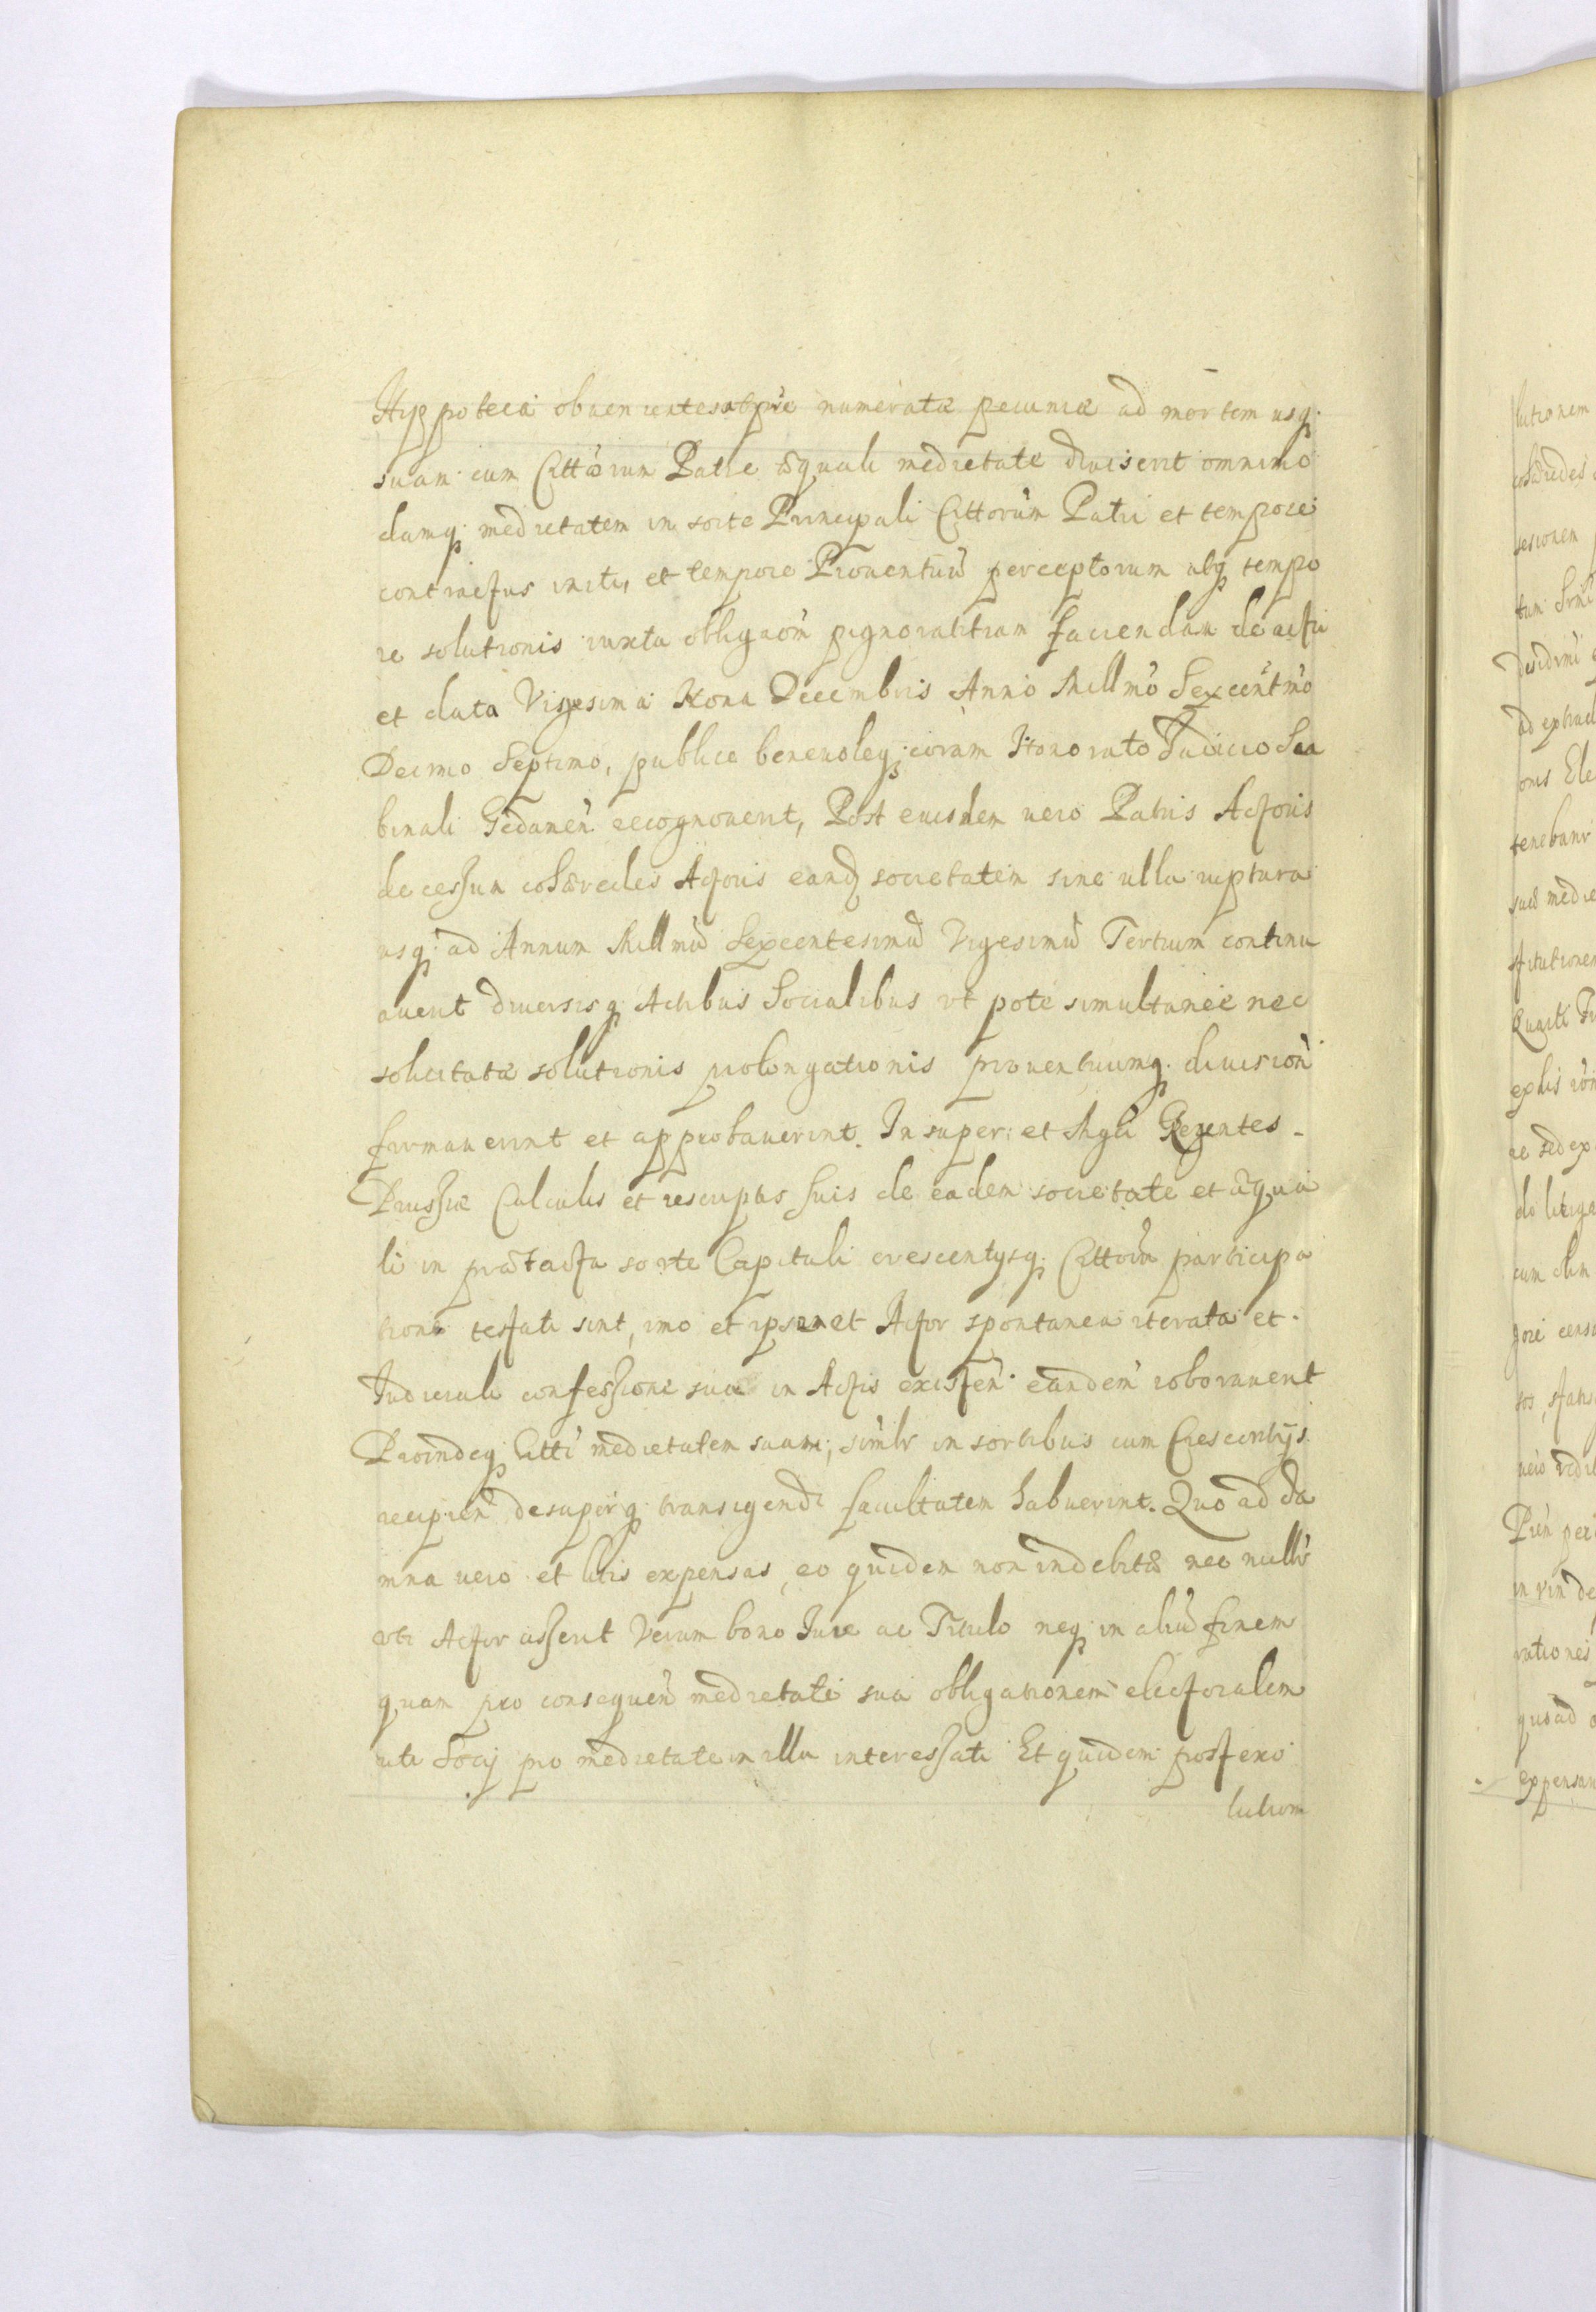 Hyppoteca obuenientes atq̃ue numeratæ pecuniæ ad mortem usq;
suam cum Cittõrum Patre æquali medietate diuiserit omnimo
damq; medietatem in sorte Principali Cittorũm Patri et tempore
contractus initi, et tempore Prouentuũ perceptorum utq; tempo
re solutionis iuxta obligãom pignoratitiam faciendam de actu
et data Vigesima Nona Decembris Anno Millm̃o Sexcent̃mo
Decimo Septimo, publice beneuoleq; coram Honorato Iudicio Sca
binali Gedaneñ recognouerit, Post eiusdem uero Patris Actoris
decessum cohæredes Actoris eand̃ societatem sine ulla ruptura
usq; ad Annum Millmũ Sexcentesimũ Vigesimũ Tertium continu
auerit diuersisq; Actibus Socialibus vt pote simultaneæ nec
solicitatæ solutionis prolongationis prouentuumq; diuisioñ
firmauerint et approbauerint. Insuper et Mgli Regentes
Prussiæ Calculis et rescriptis suis de eadem societate et æqua
li in prætacta sorte Capitali crescentijsq; Cittorũm participa
tione testati sint, imo et ipsemet Actor spontanea iterata et
Iudiciali confessione sua in Actis existeñ eandem roborauerit
Proindeq; Citti medietatem suam, simlr in sortibus cum Crescentijs
recipieñ desuperq; transigendi facultatem habuerint. Quo ad da
mna uero et litis expensas, eo quidem non indebitæ nec nullr̃
vti Actor asserit Verum bono Iure ac Titulo neq; in aliũ finem
quam pro consequeñ medietate sua obligationem electoralem
uti Socij pro medietate in illa interessati Et quidem post exo
lutionem